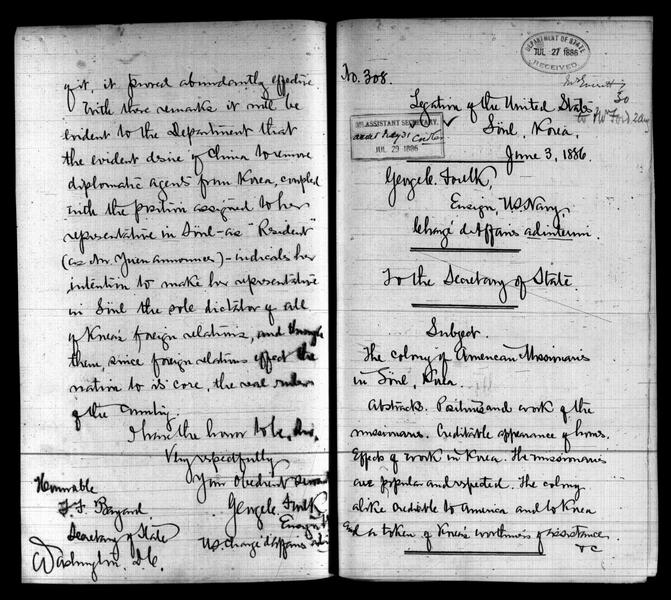 of it, it proved abundantly effective.
With these remarks it will be
evident to the Department that
the evident desire of China to remove
diplomatic agents from Korea, coupled
with the position assigned to her
representative in Söul - as "Resident"
(as Mr. Yuen announces) - indicates her
intention to make her representative
in Söul the sole dictator of all
of Korea's foreign relations, and through
them, since foreign relations effect the
nation to its core, the real ruler
of the country.
I have the honor to be, Sir,
Very respectfully
Your obedient servant
George C. Foulk
Ensign
US. Chargé d'Affaires
Honorable
T. F. Bayard
Secretary of State
Washington, D.C.
DEPARTMENT OF STATE
JUL 27 1886
RECEIVED
No. 308.
30
Legation of the United States
Söul, Korea,
June 3, 1886.
ASSISTANT SECRETARY.
JUL 29 1886
George C. Foulk,
Ensign, U.S. Navy,
Chargé d'Affaires ad interim.
To the Secretary of State.
Subject.
The colony of American Missionaries
in Söul, Korea.
Abstract. Position and work of the
missionaries. Creditable appearance of homes.
Effects of work in Korea. The missionaries
are popular and respected. The colony
alike creditable to America and to Korea
and a token of Korea's worthiness of assistance
&c